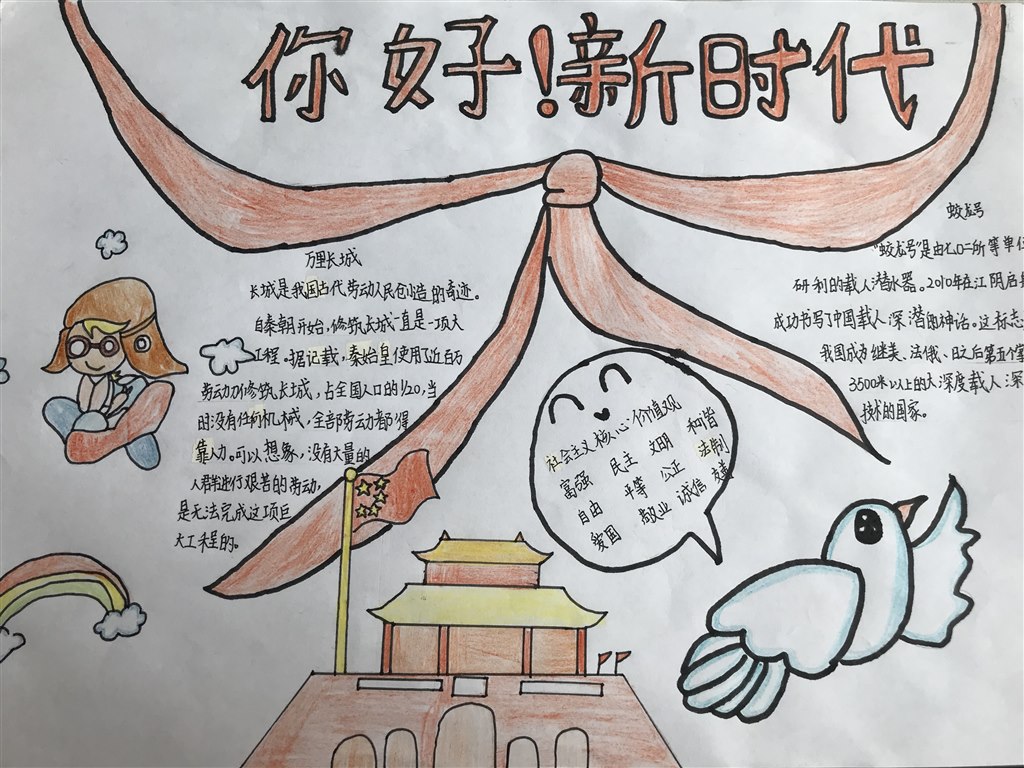 你好!新时代
万里长城
长城是我国古代劳动人民创造的奇迹。
自秦朝开始,修筑长城一直是一项大
工程。据记载,秦始皇使用了近百万
劳动力修筑长城,占全国人口的1/20,当
时没有任何机械,全部劳动都得
靠人力。可以想象,没有大量的
人群进行艰苦的劳动,
是无法完成这项巨
大工程的。
社会主义核心价值观
富强 民主 文明 和谐
自由 平等 公正 法制
爱国 敬业 诚信 友善
蛟龙号
"蛟龙号"是由七〇二所等单位
研制的载人潜水器。2010年在江阴启
成功书写了中国载人深潜的神话。这标志
我国成为继美、法、俄、日之后第五个掌
3500米以上的大深度载人深
技术的国家。